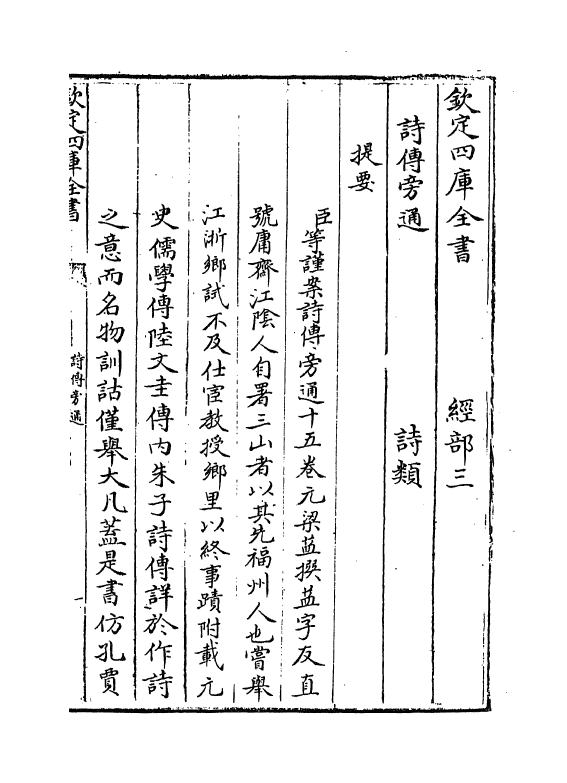 欽定四庫全書　經部三
詩傳旁通　詩類
提要
臣等謹案詩傳旁通十五卷元梁益撰益字友直
號庸齋江陰人自署三山者以其先福州人也嘗舉
江浙鄉試不及仕宦教授鄉里以終事蹟附載元
史儒學傳陸文圭傳内朱子詩傳詳於作詩
之意而名物訓詁僅舉大凡蓋是書仿孔賈
欽定四庫全書
詩傳旁通
一